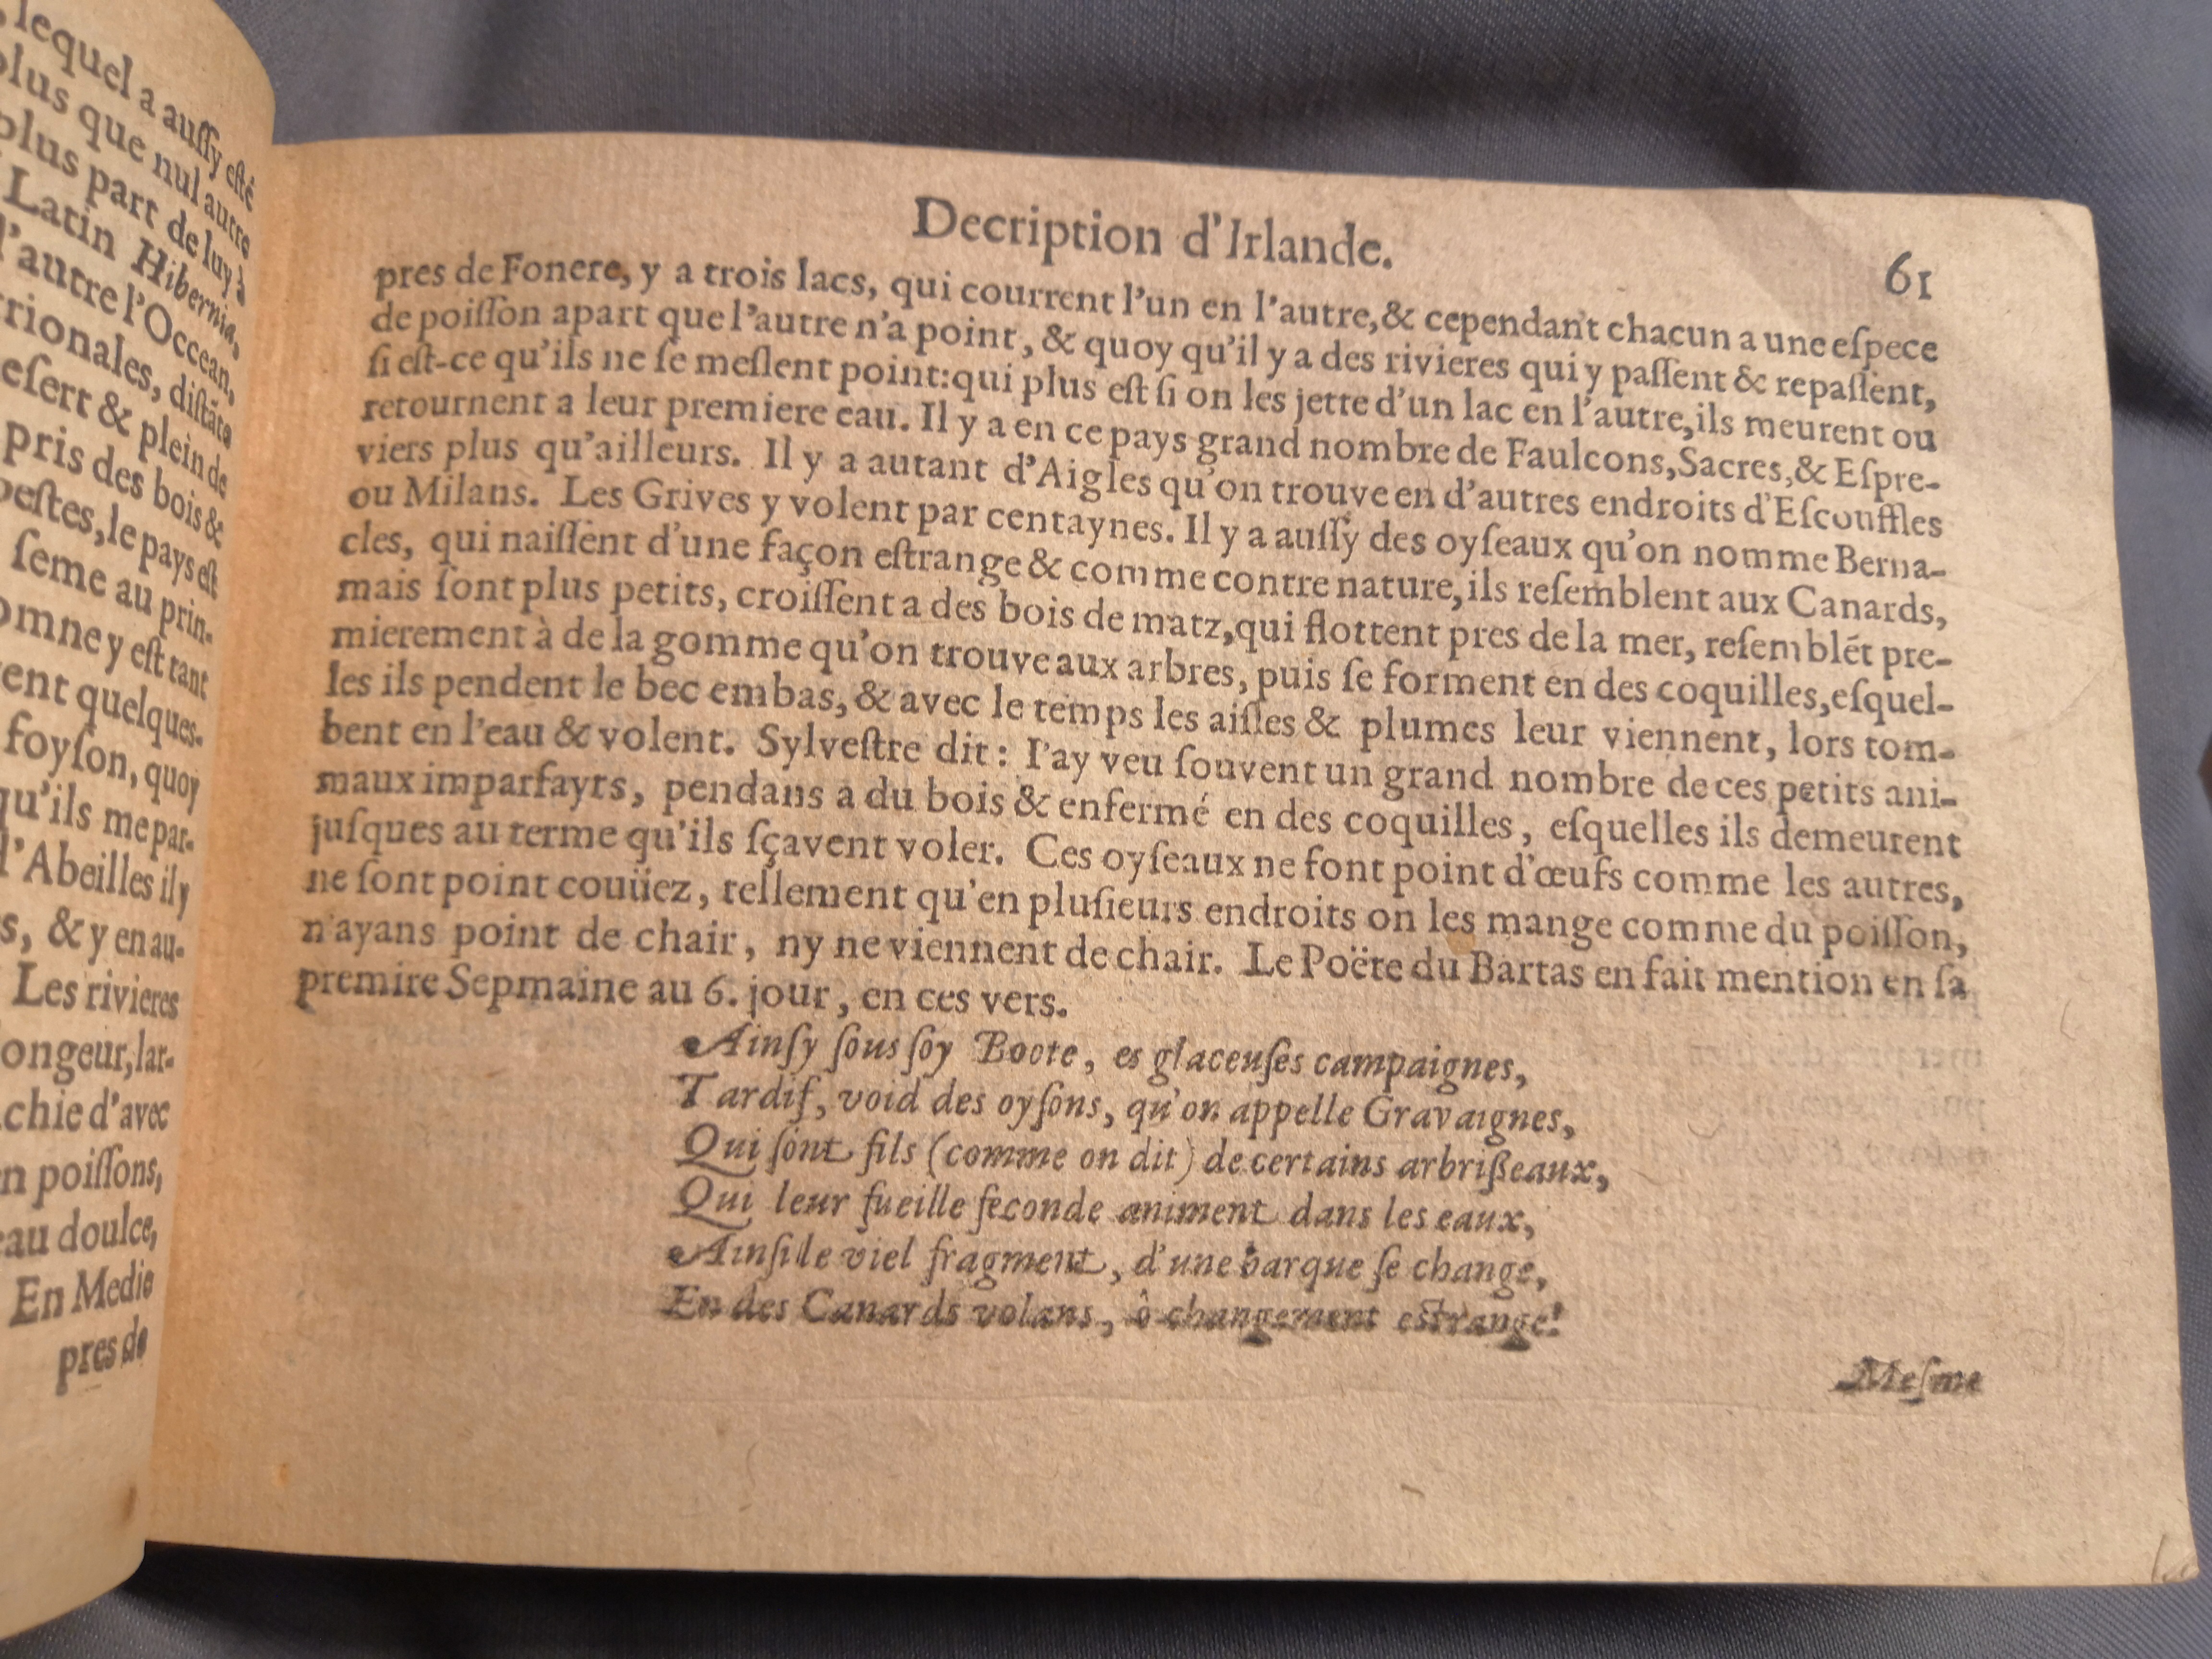 lequel a auſſy eſté
plus que nul autre
plus part de luy à
Latin Hibernia,
l'autre l'Occean,
rionales, diſtāts
eſert & plein de
pris des bois &
beſtes, le pays eſt
ſeme au prin-
omne y eſt tant
ent quelques-
foyſon, quoy
qu'ils me par-
d'Abeilles il y
s, & y en au-
Les rivieres
longeur, lar-
chie d'avec
n poiſſons,
eau doulce,
En Medie
pres de
Decription d'Irlande.
61
pres de Fonere, y a trois lacs, qui courrent l'un en l'autre, & cependant chacun a une eſpece
de poiſſon apart que l'autre n'a point, & quoy qu'il y a des rivieres qui y paſſent & repaſſent,
ſi eſt-ce qu'ils ne ſe meſlent point: qui plus eſt ſi on les jette d'un lac en l'autre, ils meurent ou
retournent a leur premiere eau. Il y a en ce pays grand nombre de Faulcons, Sacres, & Eſpre-
viers plus qu'ailleurs. Il y a autant d'Aigles qu'on trouve en d'autres endroits d'Eſcouffles
ou Milans. Les Grives y volent par centaynes. Il y a auſſy des oyſeaux qu'on nomme Berna-
cles, qui naiſſent d'une façon eſtrange & comme contre nature, ils reſemblent aux Canards,
mais ſont plus petits, croiſſent a des bois de matz, qui flottent pres de la mer, reſemblét pre-
mierement à de la gomme qu'on trouve aux arbres, puis ſe forment en des coquilles, eſquel-
les ils pendent le bec embas, & avec le temps les aiſles & plumes leur viennent, lors tom-
bent en l'eau & volent. Sylveſtre dit: I'ay veu ſouvent un grand nombre de ces petits ani-
maux imparfayts, pendans a du bois & enfermé en des coquilles, eſquelles ils demeurent
juſques au terme qu'ils ſçavent voler. Ces oyſeaux ne font point d'œufs comme les autres,
ne ſont point couüez, tellement qu'en pluſieurs endroits on les mange comme du poiſſon,
n'ayans point de chair, ny ne viennent de chair. Le Poëte du Bartas en fait mention en ſa
premire Sepmaine au 6. jour, en ces vers.
Ainſy ſous ſoy Boote, es glaceuſes campaignes,
Tardif, void des oyſons, qu'on appelle Gravaignes,
Qui ſont fils (comme on dit) de certains arbrißeaux,
Qui leur fueille feconde animent dans les eaux,
Ainſi le viel fragment, d'une barque ſe change,
En des Canards volans, ô changement estrange!
Meſme